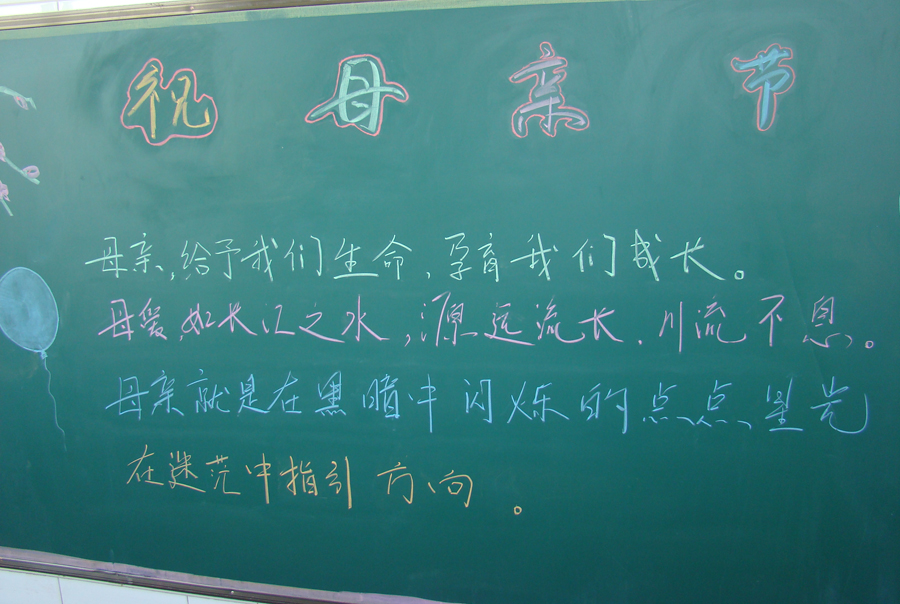 祝母亲节
母亲,给予我们生命,孕育我们成长。
母爱,如长江之水,源远流长,川流不息。
母亲就是在黑暗中闪烁的点点星光
在迷茫中指引方向。